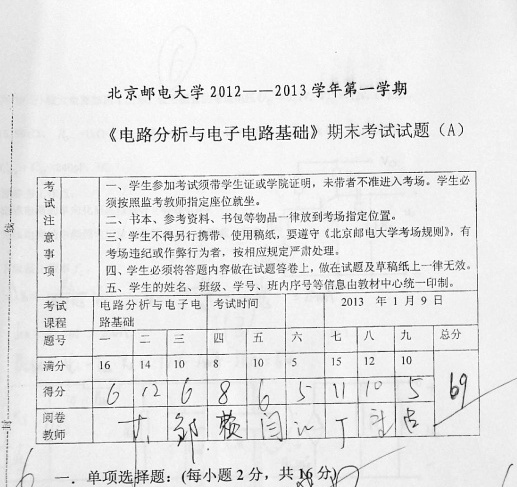 北京邮电大学 2012——2013 学年第一学期
《电路分析与电子电路基础》期末考试试题（A）
考试注意事项
一、学生参加考试须带学生证或学院证明，未带者不准进入考场。学生必
须按照监考教师指定座位就坐。
二、书本、参考资料、书包等物品一律放到考场指定位置。
三、学生不得另行携带、使用稿纸，要遵守《北京邮电大学考场规则》，有
考场违纪或作弊行为者，按相应规定严肃处理。
四、学生必须将答题内容做在试题答卷上，做在试题及草稿纸上一律无效。
五、学生的姓名、班级、学号、班内序号等信息由教材中心统一印制。
考试课程 电路分析与电子电路基础 考试时间 2013 年 1 月 9 日
题号 一 二 三 四 五 六 七 八 九 总分
满分 16 14 10 8 10 5 15 12 10
得分 6 12 6 8 6 5 11 10 5 69
阅卷教师 邹 赖 闫 丁
一．单项选择题：(每小题 2 分，共 16 分)